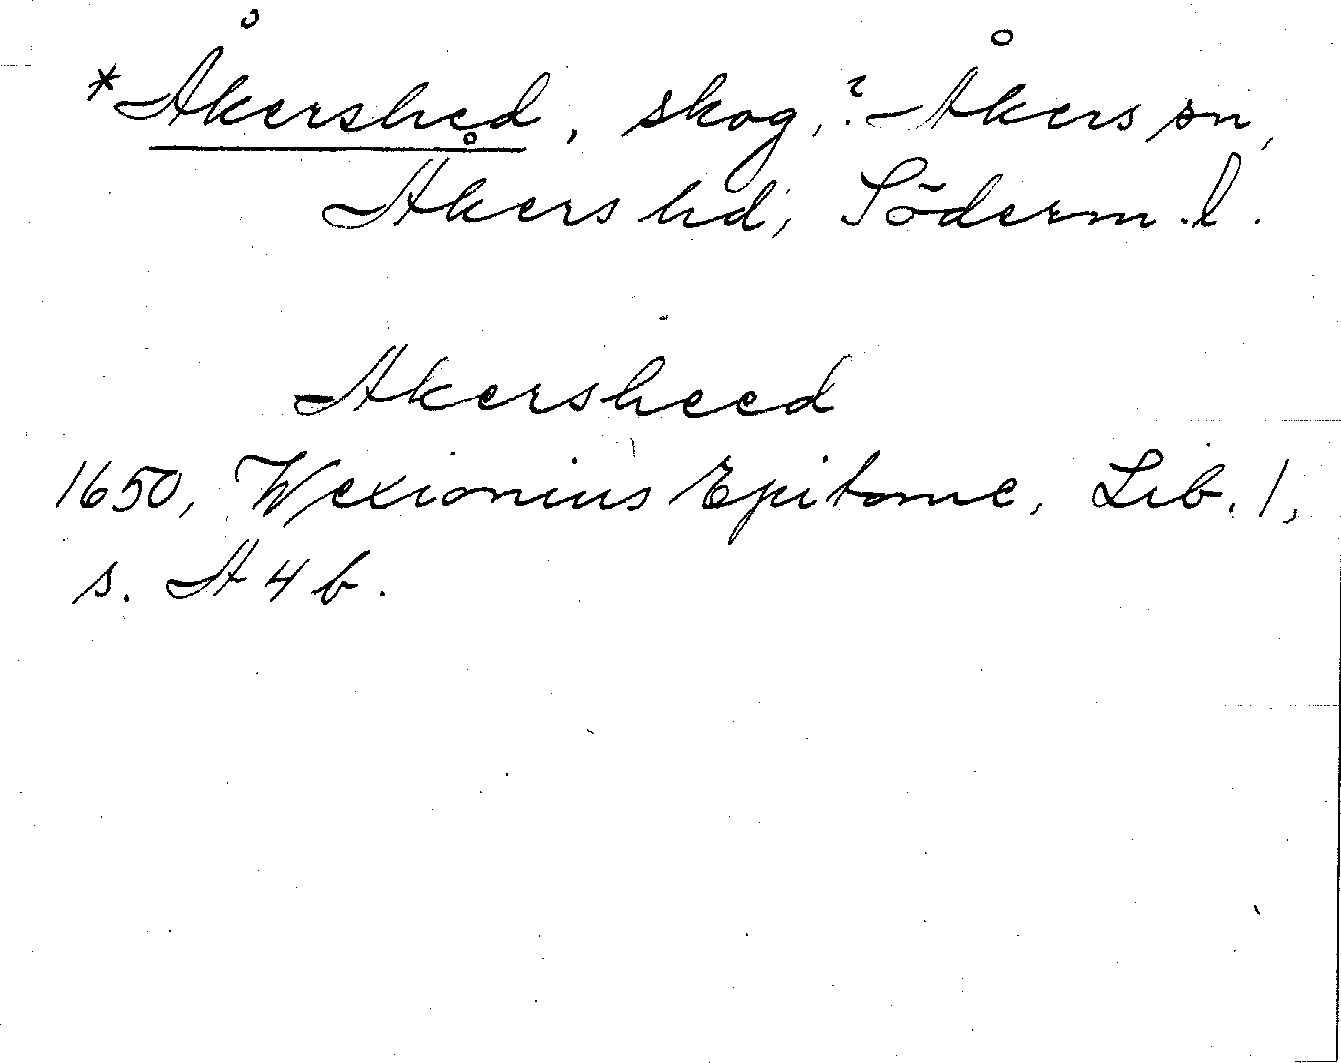 *Åkershed, skog, ? Åkers sn,
Åkers hd, Söderm. l.
Akersheed
1650, Wexionius Epitome, Lib. 1,
s. A 4 b.